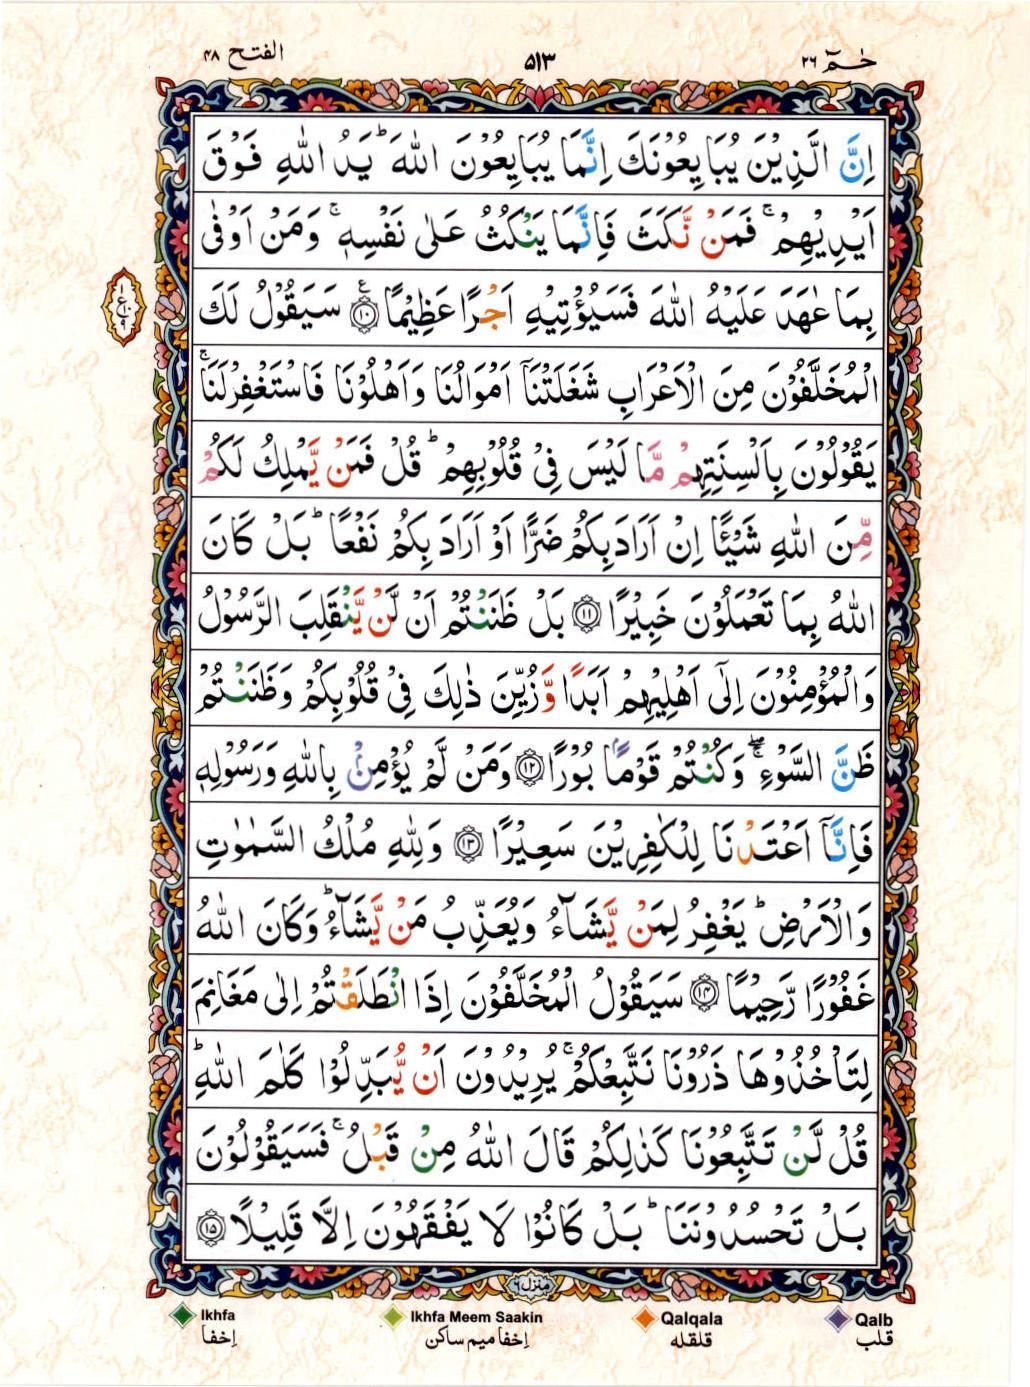 الفتح ٤٨
٥١٣
حٰمٓ ٢٦
اِنَّ الَّذِيْنَ يُبَايِعُوْنَكَ اِنَّمَا يُبَايِعُوْنَ اللّٰهَ ؕ يَدُ اللّٰهِ فَوْقَ
اَيْدِيْهِمْ ۚ فَمَنْ نَّكَثَ فَاِنَّمَا يَنْكُثُ عَلٰى نَفْسِهٖ ۚ وَمَنْ اَوْفٰى
بِمَا عٰهَدَ عَلَيْهُ اللّٰهَ فَسَيُؤْتِيْهِ اَجْرًا عَظِيْمًا ۧ ﴿۱۰﴾ سَيَقُوْلُ لَكَ
الْمُخَلَّفُوْنَ مِنَ الْاَعْرَابِ شَغَلَتْنَاۤ اَمْوَالُنَا وَاَهْلُوْنَا فَاسْتَغْفِرْ لَنَا ۚ
يَقُوْلُوْنَ بِاَلْسِنَتِهِمْ مَّا لَيْسَ فِىْ قُلُوْبِهِمْ ؕ قُلْ فَمَنْ يَّمْلِكُ لَكُمْ
مِّنَ اللّٰهِ شَيْـًٔا اِنْ اَرَادَ بِكُمْ ضَرًّا اَوْ اَرَادَ بِكُمْ نَفْعًا ؕ بَلْ كَانَ
اللّٰهُ بِمَا تَعْمَلُوْنَ خَبِيْرًا ﴿۱۱﴾ بَلْ ظَنَنْتُمْ اَنْ لَّنْ يَّنْقَلِبَ الرَّسُوْلُ
وَالْمُؤْمِنُوْنَ اِلٰٓى اَهْلِيْهِمْ اَبَدًا وَّزُيِّنَ ذٰلِكَ فِىْ قُلُوْبِكُمْ وَظَنَنْتُمْ
ظَنَّ السَّوْءِ ۖۚ وَكُنْتُمْ قَوْمًۢا بُوْرًا ﴿۱۲﴾ وَمَنْ لَّمْ يُؤْمِنْۢ بِاللّٰهِ وَرَسُوْلِهٖ
فَاِنَّاۤ اَعْتَدْنَا لِلْكٰفِرِيْنَ سَعِيْرًا ﴿۱۳﴾ وَلِلّٰهِ مُلْكُ السَّمٰوٰتِ
وَالْاَرْضِ ؕ يَغْفِرُ لِمَنْ يَّشَآءُ وَيُعَذِّبُ مَنْ يَّشَآءُ ؕ وَكَانَ اللّٰهُ
غَفُوْرًا رَّحِيْمًا ﴿۱۴﴾ سَيَقُوْلُ الْمُخَلَّفُوْنَ اِذَا انْطَلَقْتُمْ اِلٰى مَغَانِمَ
لِتَاْخُذُوْهَا ذَرُوْنَا نَتَّبِعْكُمْ ۚ يُرِيْدُوْنَ اَنْ يُّبَدِّلُوْا كَلٰمَ اللّٰهِ ؕ
قُلْ لَّنْ تَتَّبِعُوْنَا كَذٰلِكُمْ قَالَ اللّٰهُ مِنْ قَبْلُ ۚ فَسَيَقُوْلُوْنَ
بَلْ تَحْسُدُوْنَنَا ؕ بَلْ كَانُوْا لَا يَفْقَهُوْنَ اِلَّا قَلِيْلًا ﴿۱۵﴾
منزل ٦
Ikhfa
اِخفا
Ikhfa Meem Saakin
اِخفا میم ساکن
Qalqala
قلقله
Qalb
قلب